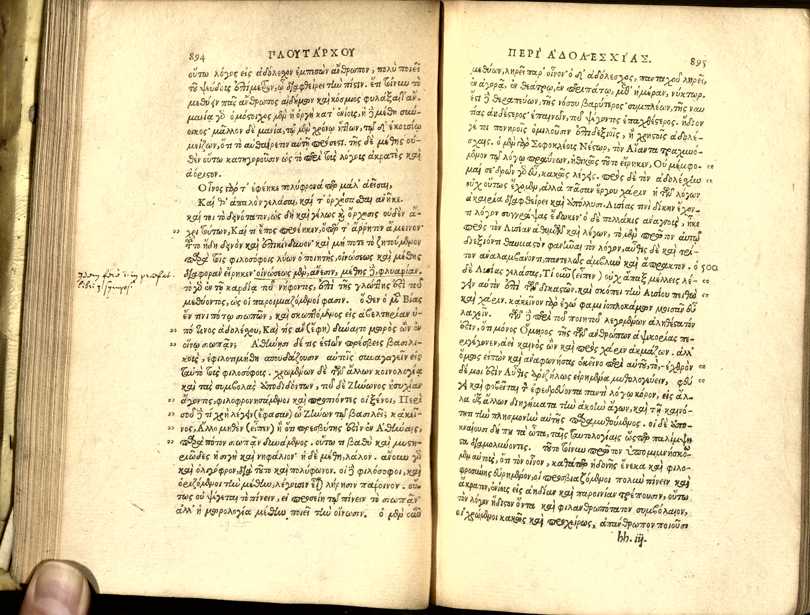 894 ΠΛΟΥΤΑΡΧΟΥ
οὕτω λόγος εἰς ἀδόλεσχον ἐμπεσὼν ἄνθρωπον, πολὺ ποιεῖ
τὸ ψεῦδος ἐπίμετρον, ᾧ διαφθείρει τὴν πίστιν. ἔτι τοίνυν τὸ
μεθύειν πᾶς ἄνθρωπος αἰδήμων καὶ κόσμιος φυλάξαιτ' ἄν.
μανίᾳ γὰρ ὁμότοιχος μὲν ἡ ὀργὴ κατ' ἐνίους, ἡ δὲ μέθη σύν-
οικος· μᾶλλον δὲ μανία, τῷ μὲν χρόνῳ ἥττων, τῷ δ' ἑκουσίῳ
μείζων, ὅτι τὸ αὐθαίρετον αὐτῇ πρόσεστι. τῆς δὲ μέθης οὐ-
θὲν οὕτω κατηγοροῦσιν ὡς τὸ περὶ τοὺς λόγους ἀκρατὲς καὶ
ἀόριστον.
Οἶνος γάρ τ' ἐφέηκε πολύφρονά περ μάλ' ἀεῖσαι,
Καί θ' ἁπαλὸν γελάσαι, καί τ' ὀρχήσασθαι ἀνῆκε.
καὶ τί τὸ δεινότατον, ὡς δὴ καὶ γέλως καὶ ὄρχησις οὐδὲν ἄ-
χρι τούτων, Καί τι ἔπος προέηκεν, ὅπερ τ' ἄρρητον ἄμεινον·
τοῦτο ἤδη δεινὸν καὶ ἐπικίνδυνον· καὶ μή ποτε τὸ ζητούμενον
παρὰ τοῖς φιλοσόφοις λύων ὁ ποιητὴς, οἰνώσεως καὶ μέθης
διαφορὰν εἴρηκεν· οἰνώσεως μὲν, ἄνεσιν, μέθης δὲ, φλυαρίαν.
τὸ γὰρ ἐν τῇ καρδίᾳ τοῦ νήφοντος, ἐπὶ τῆς γλώττης ἐστὶ τοῦ
μεθύοντος, ὡς οἱ παροιμιαζόμενοί φασιν. ὅθεν ὁ μὲν Βίας
ἔν τινι πότῳ σιωπῶν, καὶ σκωπτόμενος εἰς ἀβελτηρίαν ὑ-
πό τινος ἀδολέσχου, Καὶ τίς ἂν (ἔφη) δύναιτο μωρὸς ὢν ἐν
οἴνῳ σιωπᾶν; Ἀθήνησι δέ τις ἑστιῶν πρέσβεις βασιλι-
κοὺς, ἐφιλοτιμήθη σπουδάζουσιν αὐτοῖς συναγαγεῖν εἰς
ταὐτὸ τοὺς φιλοσόφους. χρωμένων δὲ τῶν ἄλλων κοινολογίᾳ
καὶ τὰς συμβολὰς ἀποδιδόντων, τοῦ δὲ Ζήνωνος ἡσυχίαν
ἄγοντος, φιλοφρονησάμενοι καὶ προπιόντες οἱ ξένοι, Περὶ
σοῦ δὲ τί χρὴ λέγειν (ἔφασαν) ὦ Ζήνων τῷ βασιλεῖ; κἀκεῖ-
νος, Ἄλλο μηθὲν (εἶπεν) ἢ ὅτι πρεσβύτης ἐστὶν ἐν Ἀθήναις,
παρὰ πότον σιωπᾶν δυνάμενος. οὕτω τι βαθὺ καὶ μυστη-
ριῶδες ἡ σιγὴ καὶ νηφάλιον· ἡ δὲ μέθη, λάλον. ἄνουν γὰρ
καὶ ὀλιγόφρον, διὰ τοῦτο καὶ πολύφωνον. οἱ δὲ φιλόσοφοι, καὶ
ὁριζόμενοι τὴν μέθην, λέγουσιν εἶναι λήρησιν πάροινον. οὕ-
τως οὐ ψέγεται τὸ πίνειν, εἰ προσείη τῷ πίνειν τὸ σιωπᾶν·
ἀλλ' ἡ μωρολογία μέθην ποιεῖ τὴν οἴνωσιν. ὁ μὲν οὖν
ΠΕΡΙ ΑΔΟΛΕΣΧΙΑΣ. 895
μεθύων, ληρεῖ παρ' οἶνον· ὁ δ' ἀδόλεσχος, πανταχοῦ ληρεῖ,
ἐν ἀγορᾷ, ἐν θεάτρῳ, ἐν περιπάτῳ, μεθ' ἡμέραν, νύκτωρ.
ἔστι δὲ θεραπεύων, τῆς νόσου βαρύτερος· συμπλέων, τῆς ναυ-
τίας ἀηδέστερος· ἐπαινῶν, τοῦ ψέγοντος ἐπαχθέστερος. ἥδιον
γέ τοι πονηροῖς ὁμιλοῦσιν ἐπιδεξίοις, ἢ χρηστοῖς ἀδολέ-
σχαις. ὁ μὲν γὰρ Σοφοκλέους Νέστωρ, τὸν Αἴαντα τραχυνό-
μενον τῷ λόγῳ πραΰνων, ἠθικῶς τοῦτο εἴρηκεν, Οὐ μέμφο-
μαί σε· δρῶν γὰρ εὖ, κακῶς λέγεις. πρὸς δὲ τὸν ἀδολέσχην
οὐχ οὕτως ἔχομεν, ἀλλὰ πᾶσαν ἔργου χάριν ἡ τῶν λόγων
ἀκαιρία διαφθείρει καὶ ἀπόλλυσι. Λυσίας τινὶ δίκην ἔχον-
τι λόγον συγγράψας ἔδωκεν· ὁ δὲ πολλάκις ἀναγνοὺς, ἧκε
πρὸς τὸν Λυσίαν ἀθυμῶν καὶ λέγων, τὸ μὲν πρῶτον αὐτῷ
διεξιόντι θαυμαστὸν φανῆναι τὸν λόγον, αὖθις δὲ καὶ τρί-
τον ἀναλαμβάνοντι, παντελῶς ἀμβλὺν καὶ ἄπρακτον. ὁ 500
δὲ Λυσίας γελάσας, Τί οὖν (εἶπεν) οὐχ ἅπαξ μέλλεις λέ-
γειν αὐτὸν ἐπὶ τῶν δικαστῶν. καὶ σκόπει τὴν Λυσίου πειθὼ
καὶ χάριν. κἀκεῖνον γὰρ ἐγὼ φαμὶ ἰοπλοκάμων μοισᾶν εὖ
λαχεῖν. τῶν δὲ περὶ τοῦ ποιητοῦ λεγομένων ἀληθέστατόν
ἐστιν, ὅτι μόνος Ὅμηρος τῆς τῶν ἀνθρώπων ἁψικορίας πε-
ριγέγονεν, ἀεὶ καινὸς ὢν καὶ πρὸς χάριν ἀκμάζων. ἀλλ'
ὅμως εἰπὼν καὶ ἀναφωνήσας ἐκεῖνο περὶ αὑτοῦ, τὸ, ἐχθρὸν
δέ μοί ἐστιν Αὖθις ἀριζήλως εἰρημένα μυθολογεύειν, φεύ-
γει καὶ φοβεῖται τὸν ἐφεδρεύοντα παντὶ λόγῳ κόρον, εἰς ἄλ-
λα ἐξ ἄλλων διηγήματα τὴν ἀκοὴν ἄγων, καὶ τῇ καινό-
τητι τὴν πλησμονὴν αὐτῆς παραμυθούμενος. οἱ δὲ ἀπο-
κναίουσι δή που τὰ ὦτα, ταῖς ταυτολογίαις ὥσπερ παλίμψη-
στα διαμολύνοντες. Τοῦτο τοίνυν πρῶτον ὑπομιμνήσκω-
μεν αὐτοὺς, ὅτι τὸν οἶνον, καθάπερ ἡδονῆς ἕνεκα καὶ φιλο-
φροσύνης εὑρημένον, οἱ προσβιαζόμενοι πολὺν πίνειν καὶ
ἄκρατον, ἐνίους εἰς ἀηδίαν καὶ παροινίαν τρέπουσιν, οὕτω
τὸν λόγον ἥδιστον ὄντα καὶ φιλανθρωπότατον συμβόλαιον,
οἱ χρώμενοι κακῶς καὶ προχείρως, ἀπάνθρωπον ποιοῦσι
hh.iij.